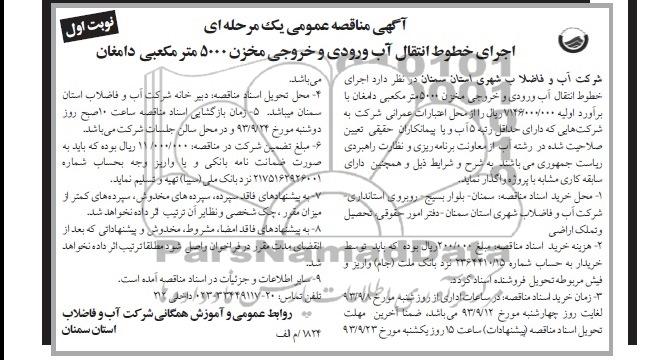 نوبت اول
آگهی مناقصه عمومی یک مرحله ای
اجرای خطوط انتقال آب ورودی و خروجی مخزن ۵۰۰۰ متر مکعبی دامغان
شرکت آب و فاضلا ب شهری استان سمنان در نظر دارد اجرای
خطوط انتقال آب ورودی و خروجی مخزن ۵۰۰۰ متر مکعبی دامغان با
برآورد اولیه ۷/۱۴۶/۰۰۰/۰۰۰ ریال را از محل اعتبارات عمرانی شرکت به
شرکت‌هایی که دارای حداقل رتبه ۵ آب و یا پیمانکاران حقیقی تعیین
صلاحیت شده در رشته آب از معاونت برنامه ریزی و نظارت راهبردی
ریاست جمهوری می باشند به شرح و شرایط ذیل و همچنین دارای
سابقه کاری مشابه با پروژه واگذار نماید.
۱- محل خرید اسناد مناقصه: سمنان- بلوار بسیج- روبروی استانداری-
شرکت آب و فاضلاب شهری استان سمنان -دفتر امور حقوقی، تحصیل
وتملک اراضی
۲- هزینه خرید اسناد مناقصه: مبلغ ۲۰۰/۰۰۰ ریال بوده که باید توسط
خریدار به حساب شماره ۲۳۶۴۴۱۰/۱۵ نزد بانک ملت (جام) واریز و
فیش مربوطه تحویل فروشنده اسناد گردد.
۳- زمان خرید اسناد مناقصه: در ساعات اداری از روز شنبه مورخ ۹۳/۹/۸
لغایت روز چهارشنبه مورخ ۹۳/۹/۱۲ می باشد، ضمنا آخرین مهلت
تحویل اسناد مناقصه (پیشنهادات) ساعت ۱۵ روز یکشنبه مورخ ۹۳/۹/۲۳
می‌باشد.
۴- محل تحویل اسناد مناقصه: دبیر خانه شرکت آب و فاضلاب استان
سمنان میباشد. ۵- زمان بازگشایی اسناد مناقصه ساعت ۱۰صبح روز
دوشنبه مورخ ۹۳/۹/۲۴ و در محل سالن جلسات شرکت می‌باشد.
۶- مبلغ تضمین شرکت در مناقصه: ۱۱/۰۰۰/۰۰۰ ریال بوده که باید به
صورت ضمانت نامه بانکی و یا واریز وجه بحساب شماره
۲۱۷۵۱۶۲۹۲۶۰۰۱ نزد بانک ملی (سیبا) تهیه و تسلیم نماید.
۷- به پیشنهادهای فاقد سپرده، سپرده های مخدوش، سپرده‌های کمتر از
میزان مقرر ، چک شخصی و نظایر آن ترتیب اثر داده نخواهد شد.
۸- به پیشنهادهای فاقد امضا، مشروط، مخدوش و پیشنهاداتی که بعد از
انقضای مدت مقرر در فراخوان واصل شود مطلقا ترتیب اثر داده نخواهد
شد.
۹- سایر اطلاعات و جزئیات در اسناد مناقصه آمده است.
تلفن تماس: ۲۰-۳۳۴۴۹۱۱۷-۰۲۳ داخلی ۲۱۲
روابط عمومی و آموزش همگانی شرکت آب و فاضلاب
استان سمنان
۱۸۲۴/ م الف
ParsNamadData